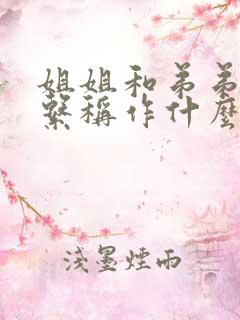 姐姐和弟弟
系稱作什麼
淺墨煙雨